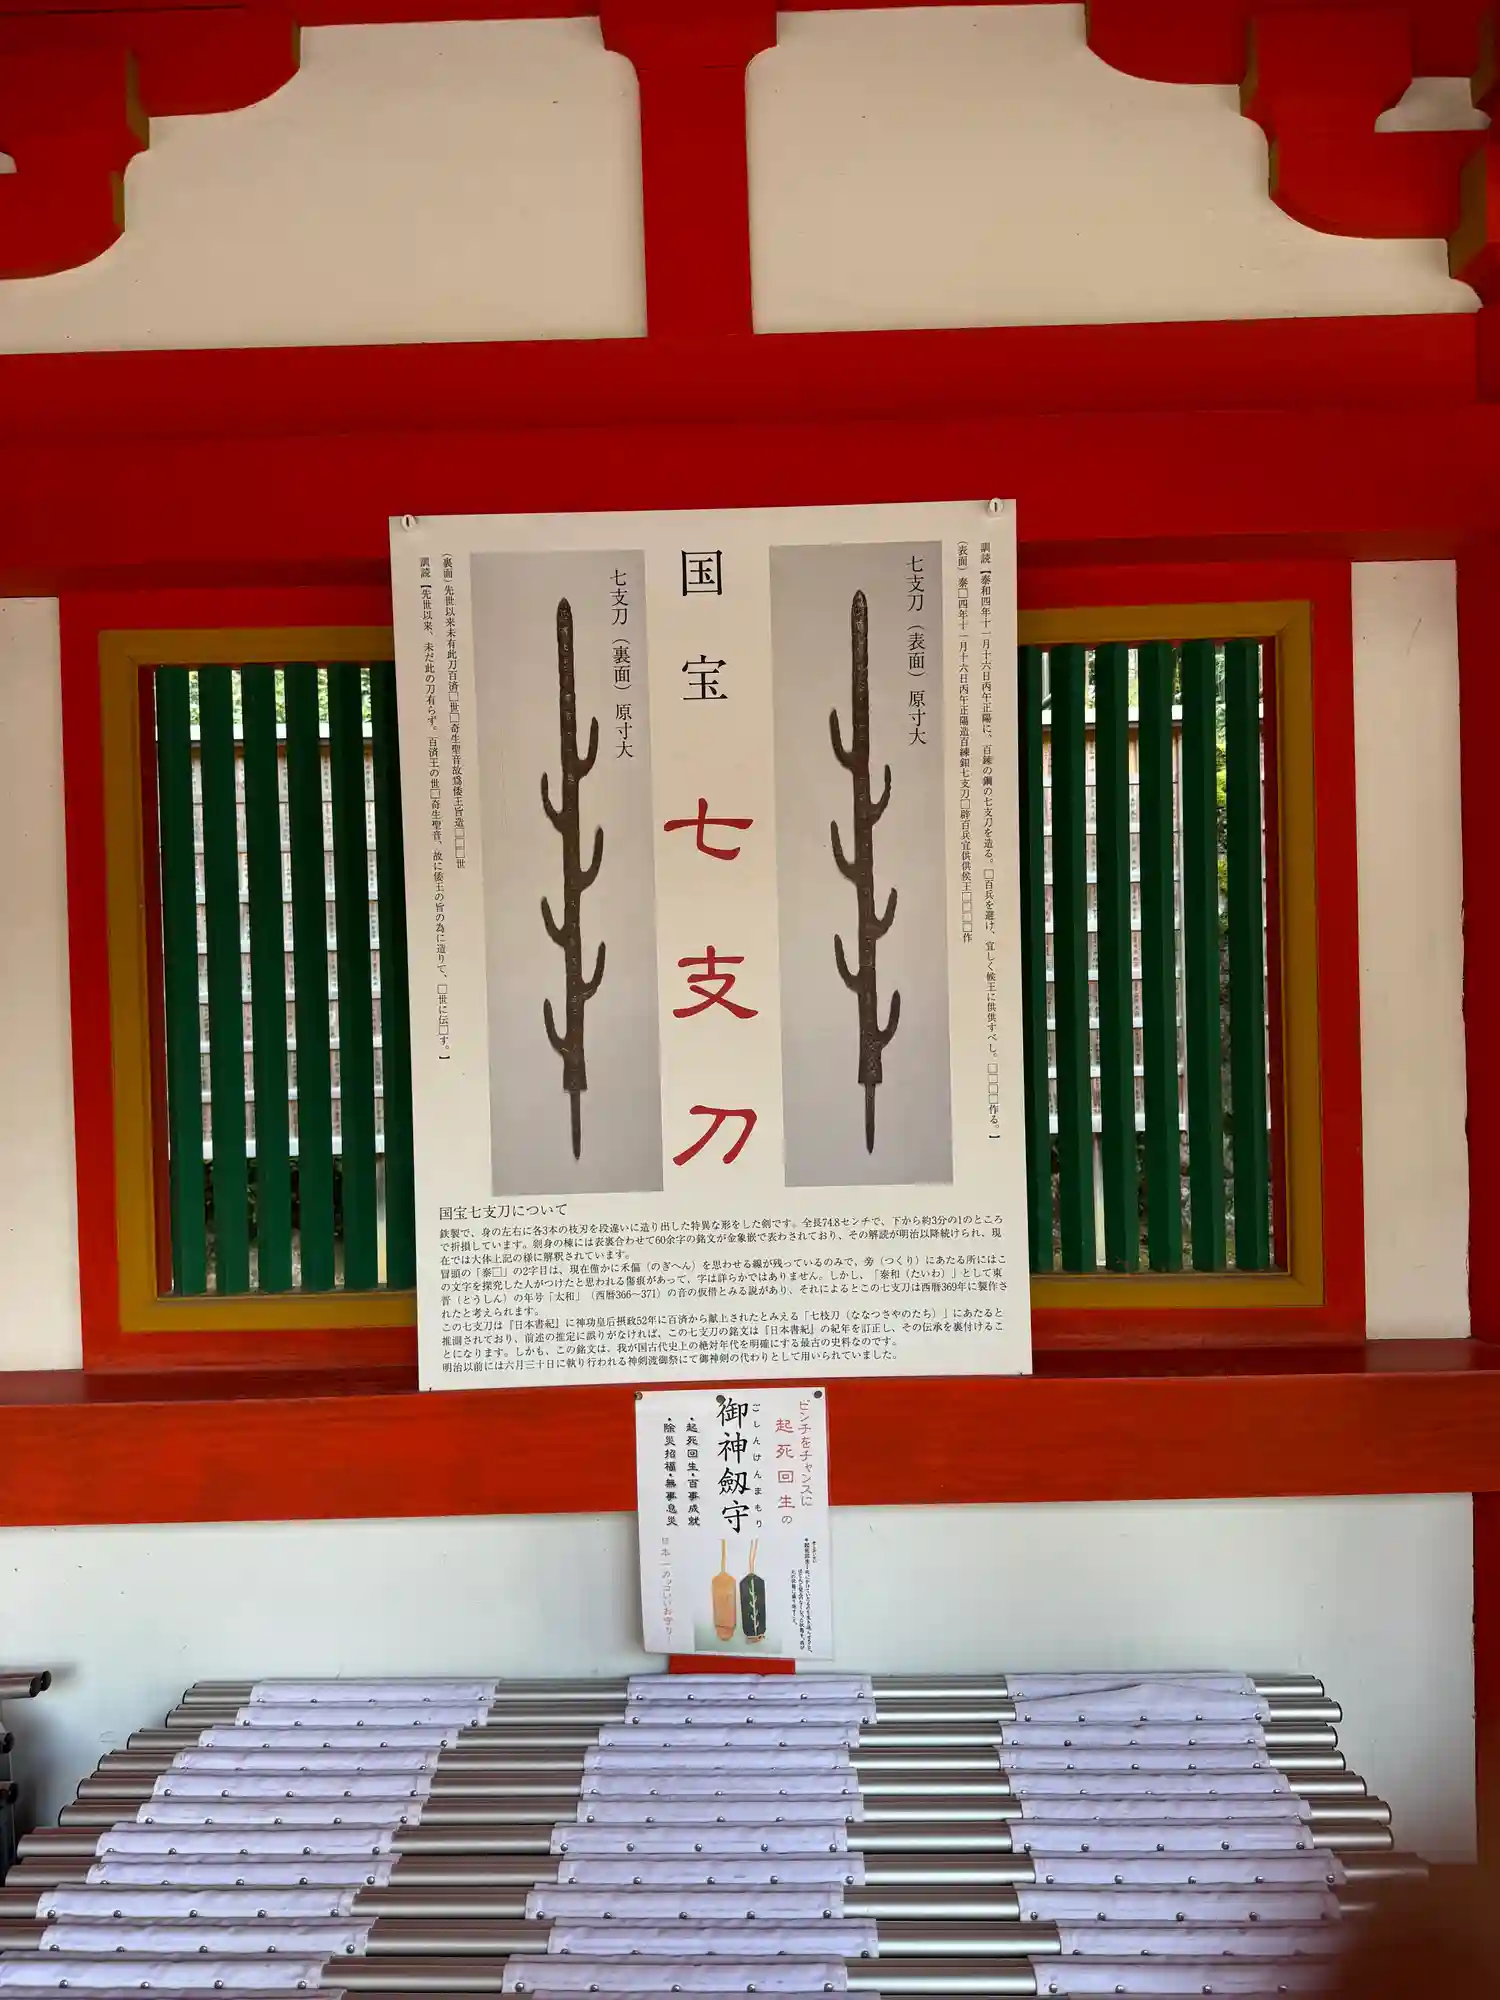 国宝 七支刀
訓読【泰和四年十一月十六日丙午正陽に、百錬の鋼の七支刀を造る。□百兵を避け、宜しく候王に供供すべし。□□□□作る。】
(表面) 泰□四年十一月十六日丙午正陽造百練釦七支刀□辟百兵宜供供侯王□□□□作
七支刀(表面)原寸大
七支刀(裏面)原寸大
(裏面)先世以来未有此刀百済□世□奇生聖音故為倭王旨造□□□世
訓読【先世以来、未だ此の刀有らず。百済王の世□奇生聖音、故に倭王の旨の為に造りて、□世に伝□す。】
国宝七支刀について
鉄製で、身の左右に各3本の枝刃を段違いに造り出した特異な形をした剣です。全長74.8センチで、下から約3分の1のところ
で折損しています。剣身の棟には表裏合わせて60余字の銘文が金象嵌で表わされており、その解読が明治以降続けられ、現
在では大体上記の様に解釈されています。
冒頭の「泰□」の2字目は、現在僅かに禾偏(のぎへん)を思わせる線が残っているのみで、旁(つくり)にあたる所にはこ
の文字を探究した人がつけたと思われる傷痕があって、字は詳らかではありません。しかし、「泰和(たいわ)」として東
晋(とうしん)の年号「太和」(西暦366〜371)の音の仮借とみる説があり、それによるとこの七支刀は西暦369年に製作さ
れたと考えられます。
この七支刀は『日本書紀』に神功皇后摂政52年に百済から献上されたとみえる「七枝刀(ななつさやのたち)」にあたると
推測されており、前述の推定に誤りがなければ、この七支刀の銘文は『日本書紀』の紀年を訂正し、その伝承を裏付けるこ
とになります。しかも、この銘文は、我が国古代史上の絶対年代を明確にする最古の史料なのです。
明治以前には六月三十日に執り行われる神剣渡御祭にて御神剣の代わりとして用いられていました。
ピンチをチャンスに
起死回生の
ごしんけんまもり
御神劔守
・起死回生・百事成就
・除災招福・無事息災
日本一カッコいいお守り!